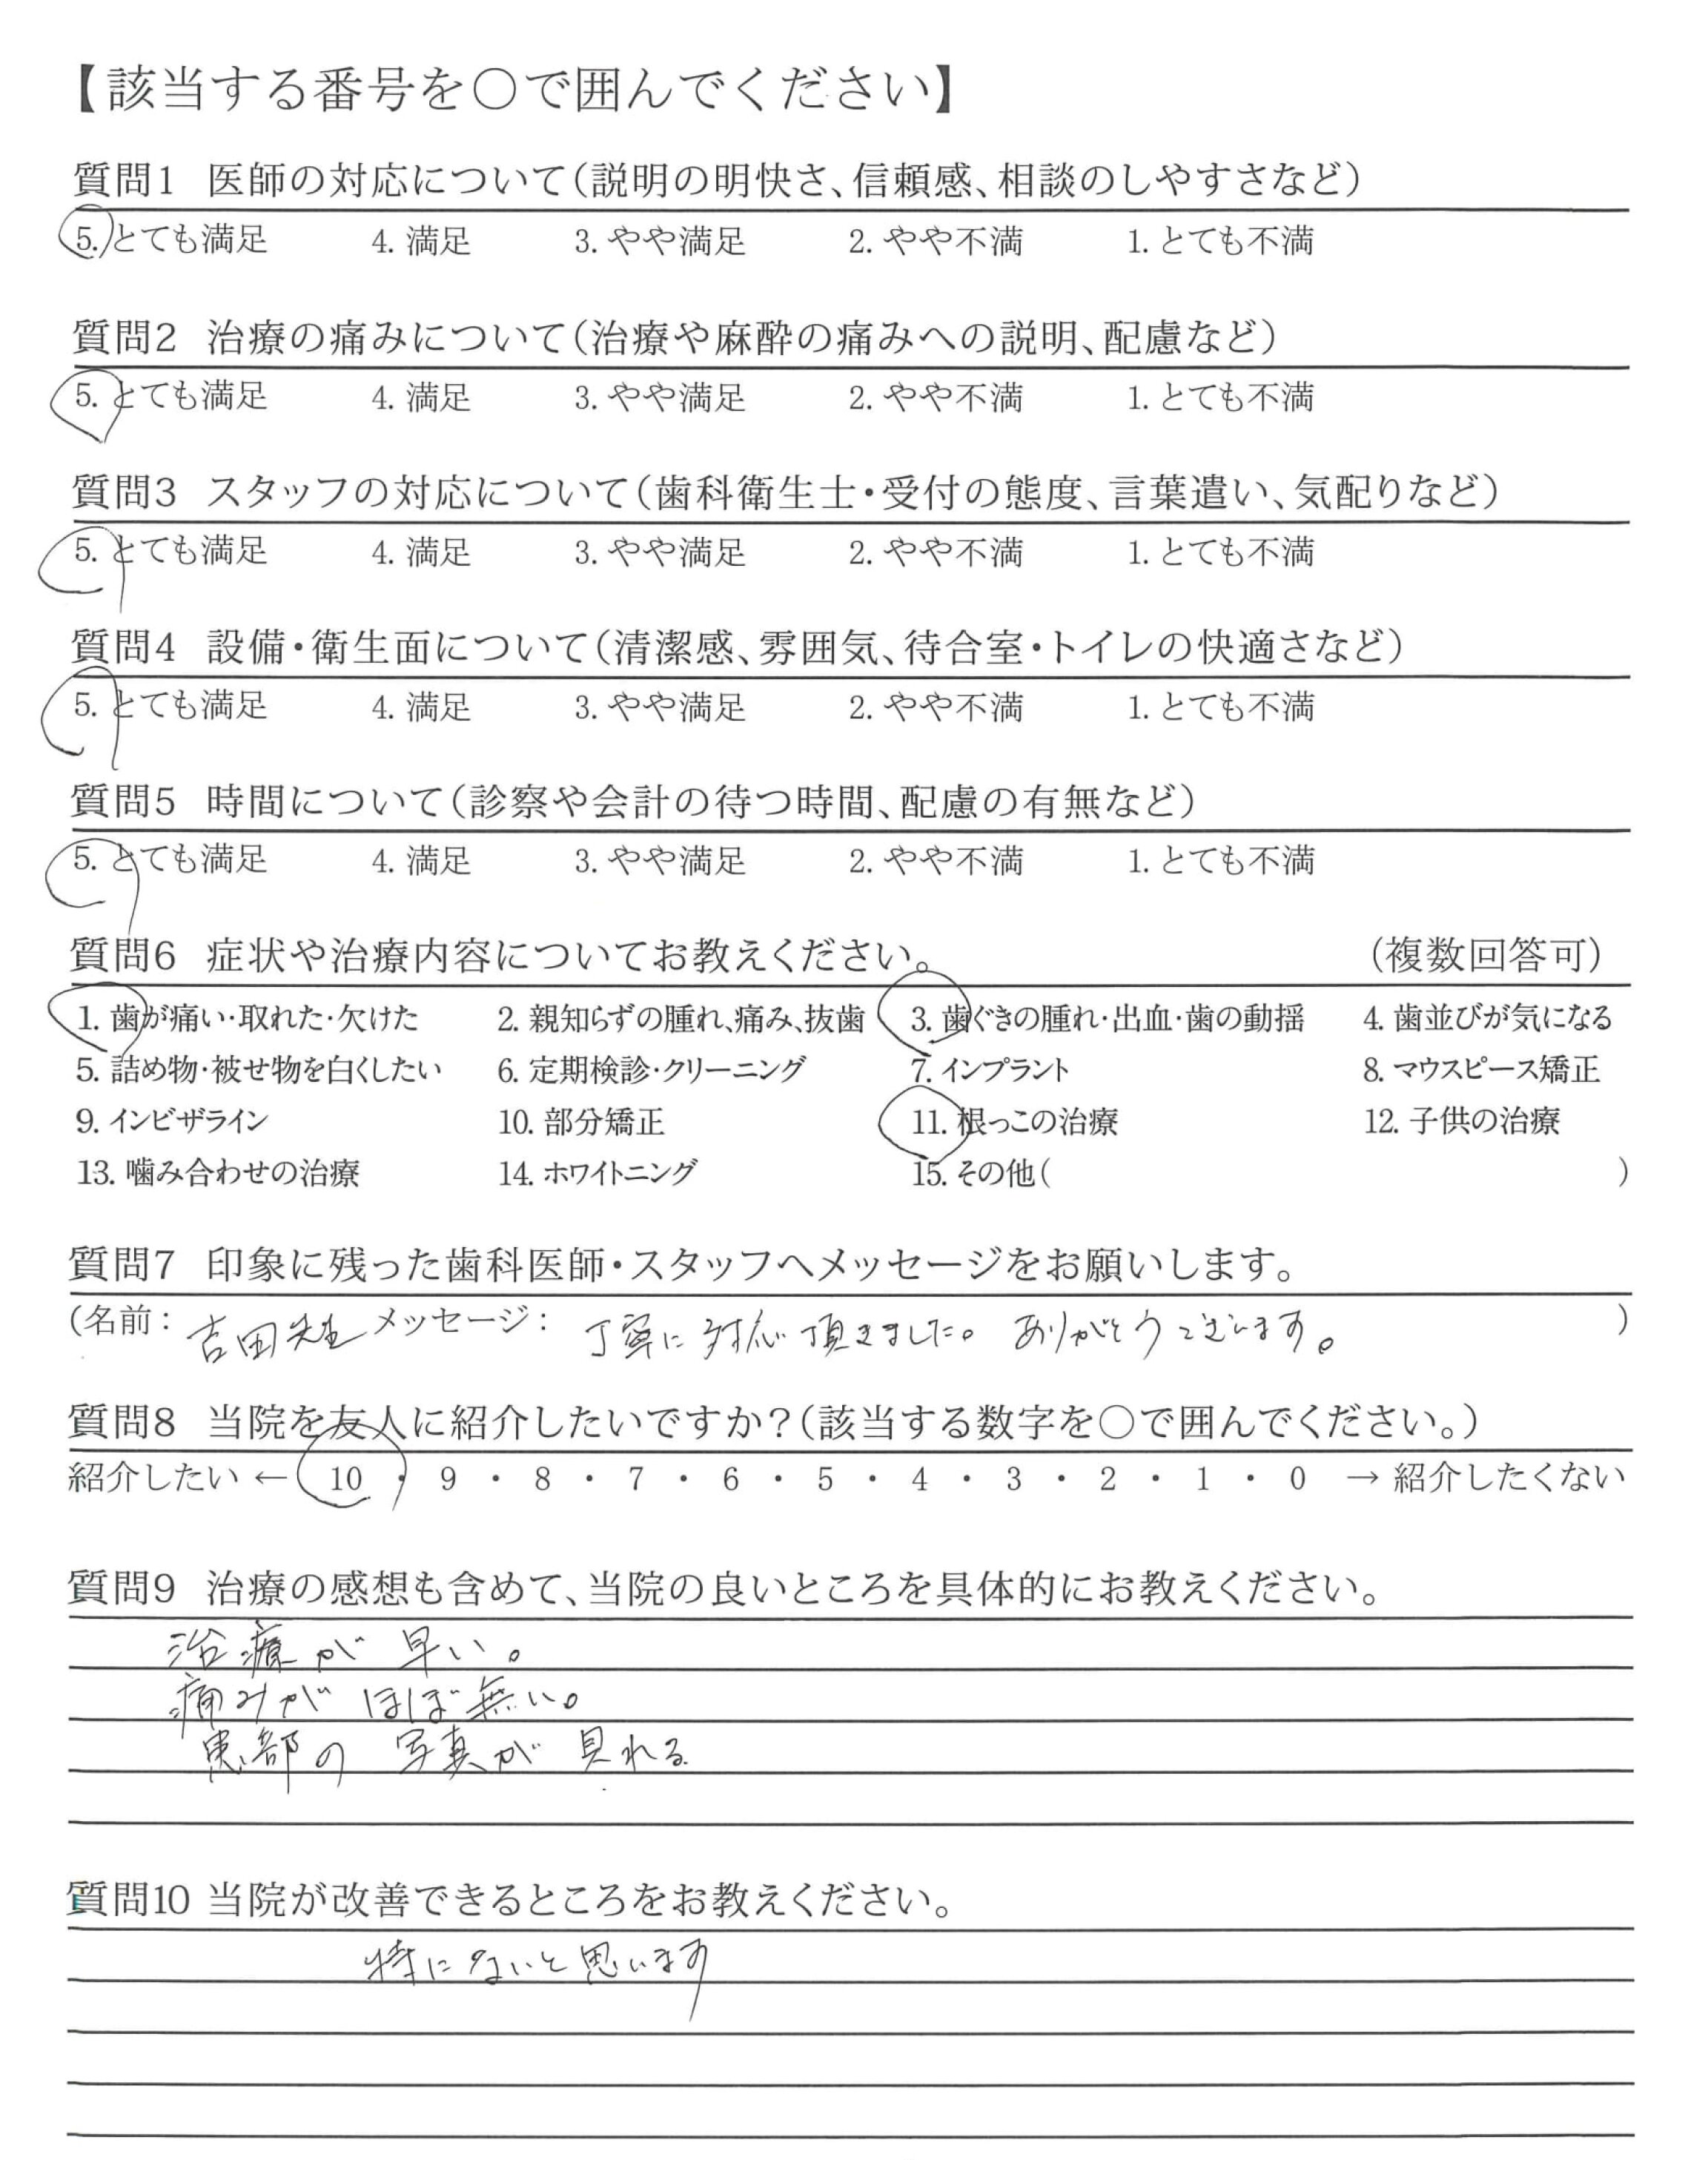 【該当する番号を○で囲んでください】
質問1 医師の対応について(説明の明快さ、信頼感、相談のしやすさなど)
5. とても満足 4. 満足 3. やや満足 2. やや不満 1. とても不満
質問2 治療の痛みについて(治療や麻酔の痛みへの説明、配慮など)
5. とても満足 4. 満足 3. やや満足 2. やや不満 1. とても不満
質問3 スタッフの対応について(歯科衛生士・受付の態度、言葉遣い、気配りなど)
5. とても満足 4. 満足 3. やや満足 2. やや不満 1. とても不満
質問4 設備・衛生面について(清潔感、雰囲気、待合室・トイレの快適さなど)
5. とても満足 4. 満足 3. やや満足 2. やや不満 1. とても不満
質問5 時間について(診察や会計の待つ時間、配慮の有無など)
5. とても満足 4. 満足 3. やや満足 2. やや不満 1. とても不満
質問6 症状や治療内容についてお教えください。 (複数回答可)
1. 歯が痛い・取れた・欠けた 2. 親知らずの腫れ、痛み、抜歯 3. 歯ぐきの腫れ・出血・歯の動揺 4. 歯並びが気になる
5. 詰め物・被せ物を白くしたい 6. 定期検診・クリーニング 7. インプラント 8. マウスピース矯正
9. インビザライン 10. 部分矯正 11. 根っこの治療 12. 子供の治療
13. 噛み合わせの治療 14. ホワイトニング 15. その他( )
質問7 印象に残った歯科医師・スタッフへメッセージをお願いします。
(名前: 吉田先生 メッセージ: 丁寧に対応頂きました。ありがとうございます。 )
質問8 当院を友人に紹介したいですか?(該当する数字を○で囲んでください。)
紹介したい ← 10 ・ 9 ・ 8 ・ 7 ・ 6 ・ 5 ・ 4 ・ 3 ・ 2 ・ 1 ・ 0 → 紹介したくない
質問9 治療の感想も含めて、当院の良いところを具体的にお教えください。
治療が早い。
痛みがほぼ無い。
患部の写真が見れる
質問10 当院が改善できるところをお教えください。
特にないと思います